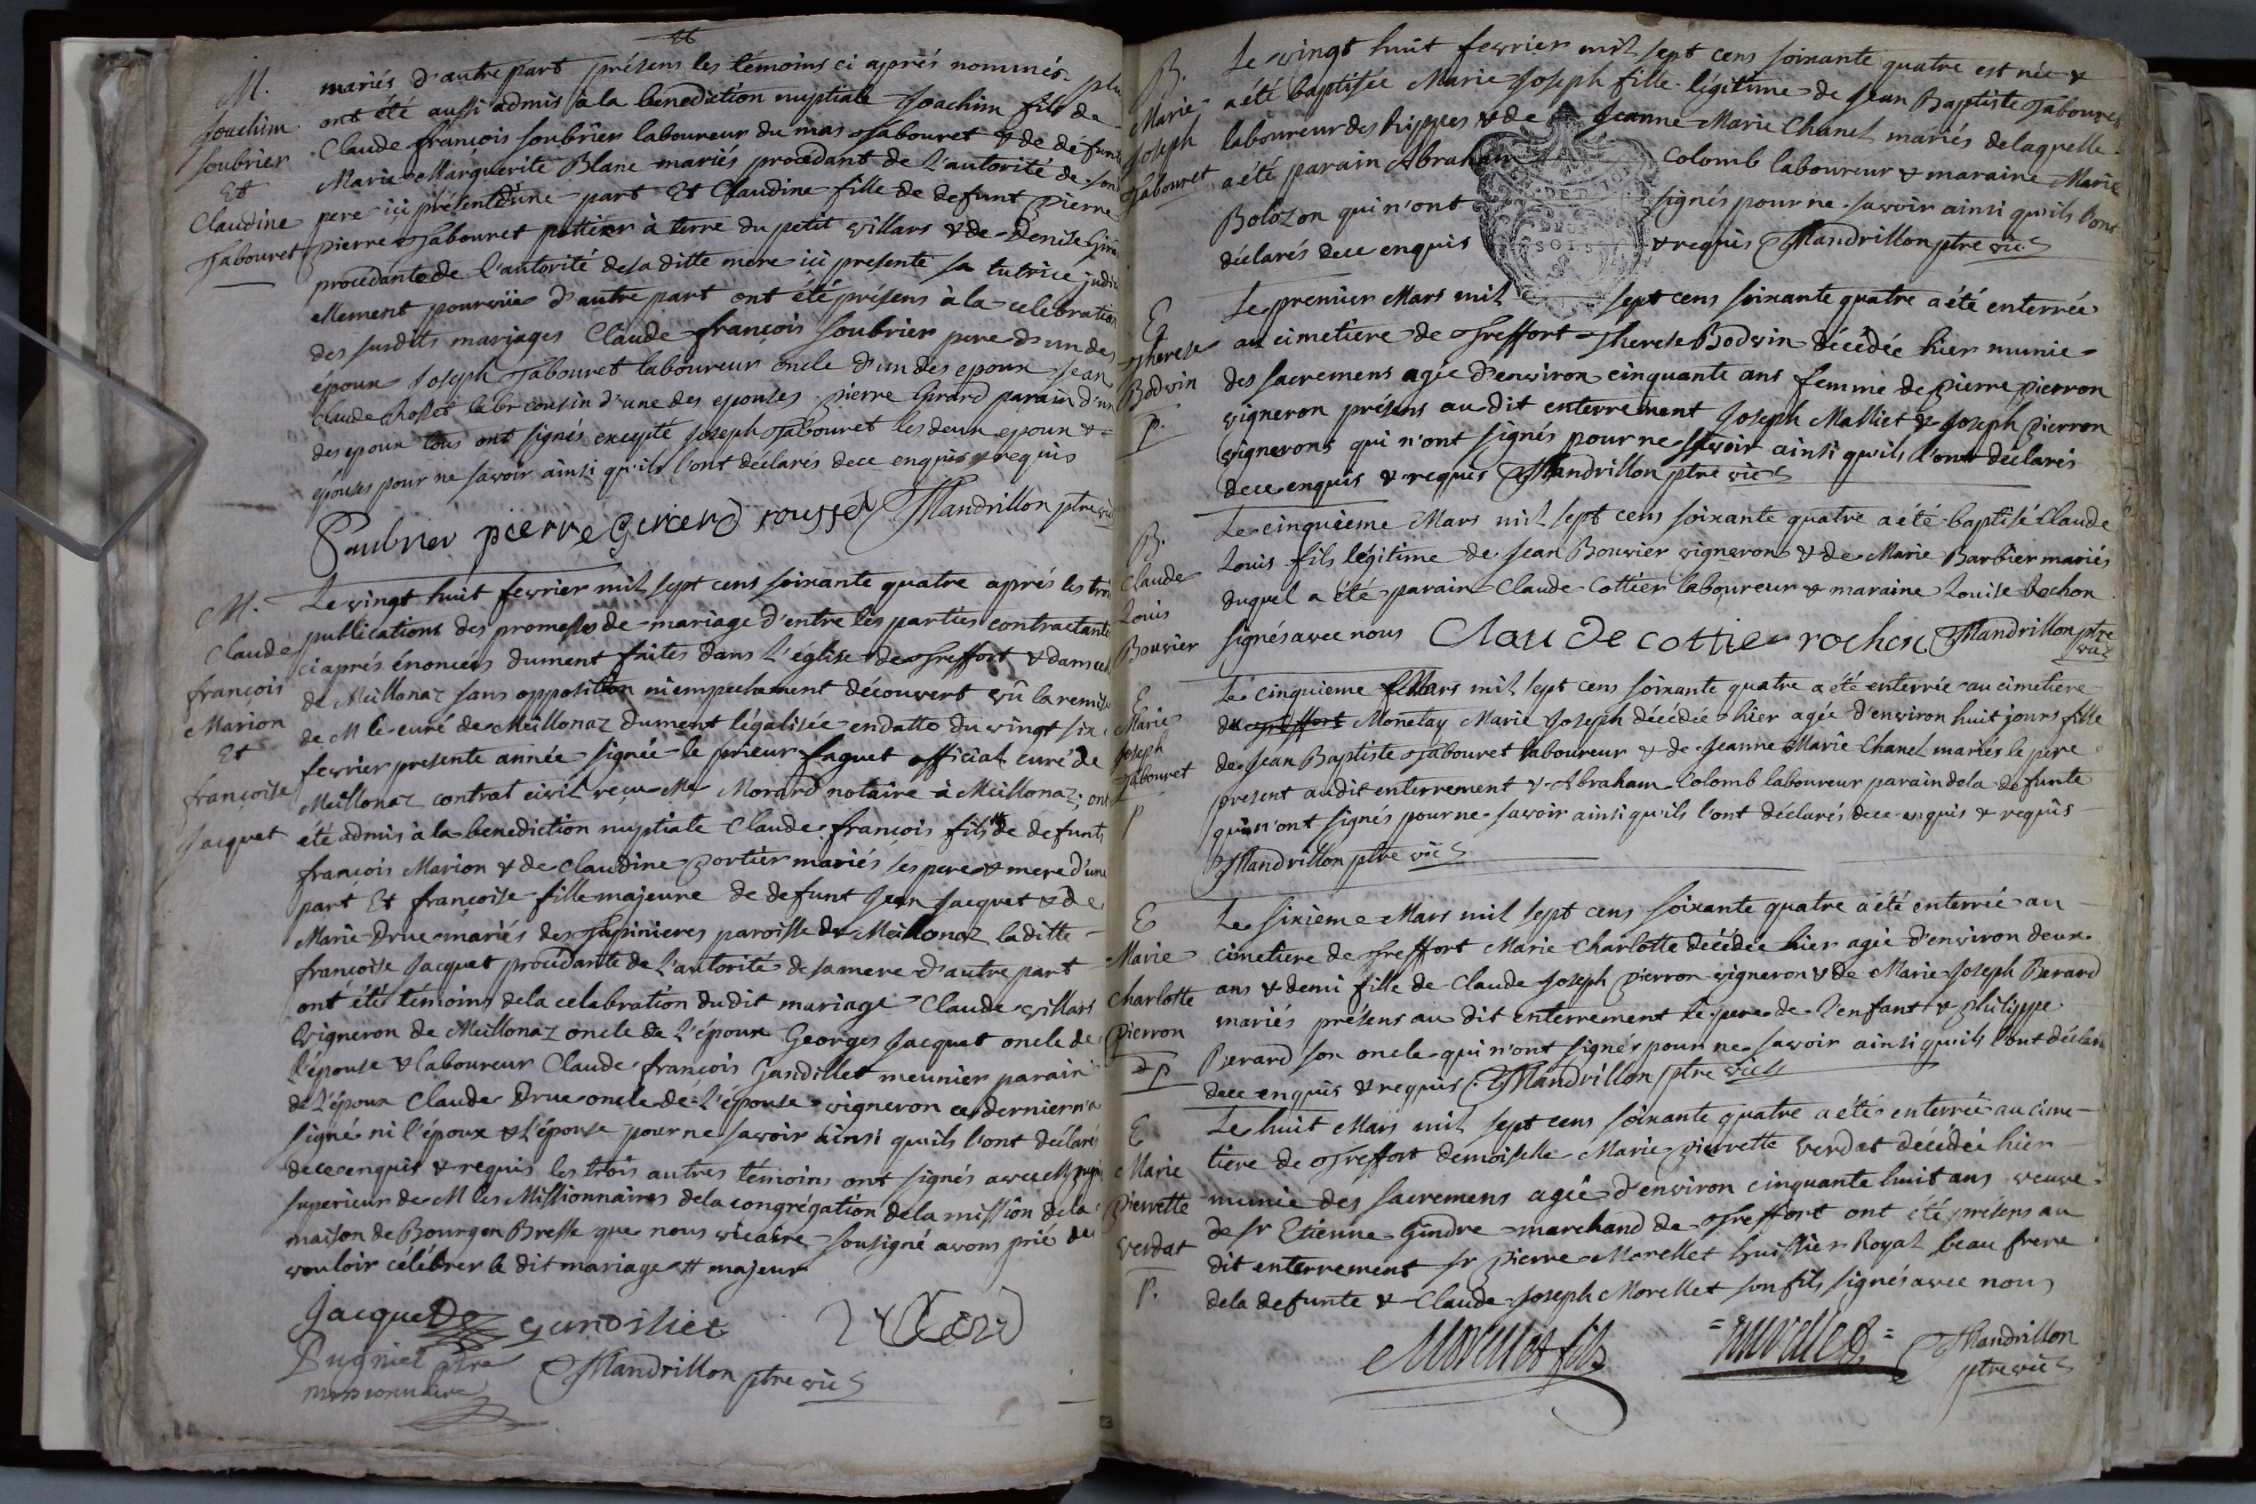 M.
Joachim
Soubrier
Et
Claudine
Tabouret
mariés d'autre part présens les témoins ci aprés nommés plu
ont été aussi admis à la benediction nuptiale Joachim fils de
Claude françois Soubrier laboureur du mas Tabouret & de défunte
Marie Marguerite Blanc mariés procedant de l'autorité de son
pere ici présent d'une part Et Claudine fille de defunt pierre
pierre Tabouret pottier à terre du petit villars & de Denise Girard
procedante de l'autorité de sa ditte mere ici presente sa tutrice judi
ellement pourvüe d'autre part ont été présens à la celebration
des susdits mariages Claude françois Soubrier pere d'un des
époux Joseph Tabouret laboureur oncle d'un des epoux Jean
Claude Rosset labr cousin d'une des epouses pierre Girard parain d'un
des epoux tous ont signés excepté Joseph Tabouret les deux epoux &
épouses pour ne savoir ainsi qu'ils l'ont déclarés de ce enquis & requis
Saubrier pierre Girerd rousset Mandrillon ptre vic
M.
Claude
françois
Marion
Et
françoise
Jacquet
Le vingt huit fevrier mil sept cens soixante quatre aprés les trois
publications des promesses de mariage d'entre les parties contractantes
ci aprés énoncées dument faites dans l'église de Treffort & dans celle
de Meillonaz sans opposition ni empechement découvert vû la remise
de M le curé de Meillonaz dument légalisée en datte du vingt six
fevrier presente année signée le prieur faguet official curé de
Meillonaz contrat civil reçu Me Morard notaire à Meillonaz; ont
été admis à la benediction nuptiale Claude françois fils # de defunts
françois Marion & de Claudine portier mariés ses pere & mere d'une
part Et françoise fille majeure de defunt Jean Jacquet & de
Marie Drue mariés des Tupinieres paroisse de Meillonaz laditte
françoise Jacquet procedante de l'autorité de sa mere d'autre part
ont été témoins de la celabration du dit mariage Claude villars
vigneron de Meillonaz oncle de l'époux Georges Jacquet oncle de
l'épouse & laboureur Claude françois Gandillet meunier parain
de l'époux Claude Drue oncle de l'épouse vigneron ce dernier n'a
signé ni l'époux & l'épouse pour ne savoir ainsi qu'ils l'ont déclarés
de ce enquis & requis les trois autres témoins ont signés avec M
superieur de M les Missionnaires de la congrégation de la mission de la
maison de Bourg en Bresse que nous vicaire sousigné avons prié de
vouloir célébrer le dit mariage # majeur
Jacquet Gandillet
Pugniet ptre
missionnaire Mandrillon ptre vic
B.
Marie
Joseph
Tabouret
Le vingt huit fevrier mil sept cens soixante quatre est née &
a été baptisée Marie Joseph fille légitime de Jean Baptiste Tabouret
laboureur des Rippes & de Jeanne Marie Chanel mariés de laquelle
a été parain Abraham Colomb laboureur & maraine Marie
Bolozon qui n'ont signés pour ne savoir ainsi qu'ils l'ont
déclarés de ce enquis & requis Mandrillon ptre vic
DEUX
SOLS
E
Therese
Bodvin
p.
Le premier Mars mil sept cens soixante quatre a été enterrée
au cimetiere de Treffort Therese Bodvin décédée hier munie
des sacremens agée d'environ cinquante ans femme de pierre pierron
vigneron présens au dit enterrement Joseph Malliet & Joseph pierron
vignerons qui n'ont signés pour ne savoir ainsi qu'ils l'ont déclarés
de ce enquis & requis Mandrillon ptre vic
B.
Claude
Louis
Bouvier
Le cinquieme Mars mil sept cens soixante quatre a été baptisé Claude
Louis fils légitime de Jean Bouvier vigneron & de Marie Barbier mariés
duquel a été parain Claude Cottier laboureur & maraine Louise Rochon
signés avec nous Claude cottier rochon Mandrillon ptre
vic
E
Marie
Joseph
Tabouret
p
Le cinquieme Mars mil sept cens soixante quatre a été enterrée au cimetiere
de Treffort Monetay Marie Joseph décédée hier agée d'environ huit jours fille
de Jean Baptiste Tabouret laboureur & de Jeanne Marie Chanel mariés le pere
present audit enterrement & Abraham Colomb laboureur parain de la defunte
qui n'ont signés pour ne savoir ainsi qu'ils l'ont déclarés de ce enquis & requis
Mandrillon ptre vic
E
Marie
Charlotte
pierron
p
Le sixieme Mars mil sept cens soixante quatre a été enterrée au
cimetiere de Treffort Marie Charlotte décédée hier agée d'environ deux
ans & demi fille de Claude Joseph pierron vigneron & de Marie Joseph Berard
mariés présens au dit enterrement le pere de l'enfant & philippe
Berard son oncle qui n'ont signés pour ne savoir ainsi qu'ils l'ont déclaré
de ce enquis & requis. Mandrillon ptre vic
E
Marie
pierrette
verdat
p.
Le huit Mars mil sept cens soixante quatre a été enterrée au cime-
tiere de Treffort demoiselle Marie pierrette verdat décédée hier
munie des sacremens agée d'environ cinquante huit ans veuve
de sr Etienne Gindre marchand de Treffort ont été présens au
dit enterrement sr pierre Morellet huissier Royal beau frere
de la defunte & Claude Joseph Morellet son fils signés avec nous
Morellet fils morellet Mandrillon
ptre vic